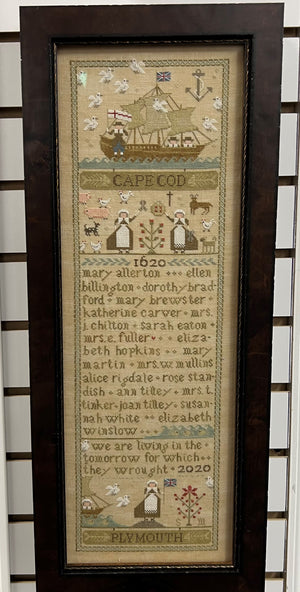 CAPE COD
1620
mary allerton ellen
billington dorothy brad-
ford mary brewster
katherine carver mrs.
j. chilton sarah eaton
mrs. e. fuller eliza-
beth hopkins mary
martin mrs. w. mullins
alice rigdale rose stan-
dish ann tilley mrs. t.
tinker joan tilley susan-
nah white elizabeth
winslow
we are living in the
tomorrow for which
they wrought 2020
PLYMOUTH